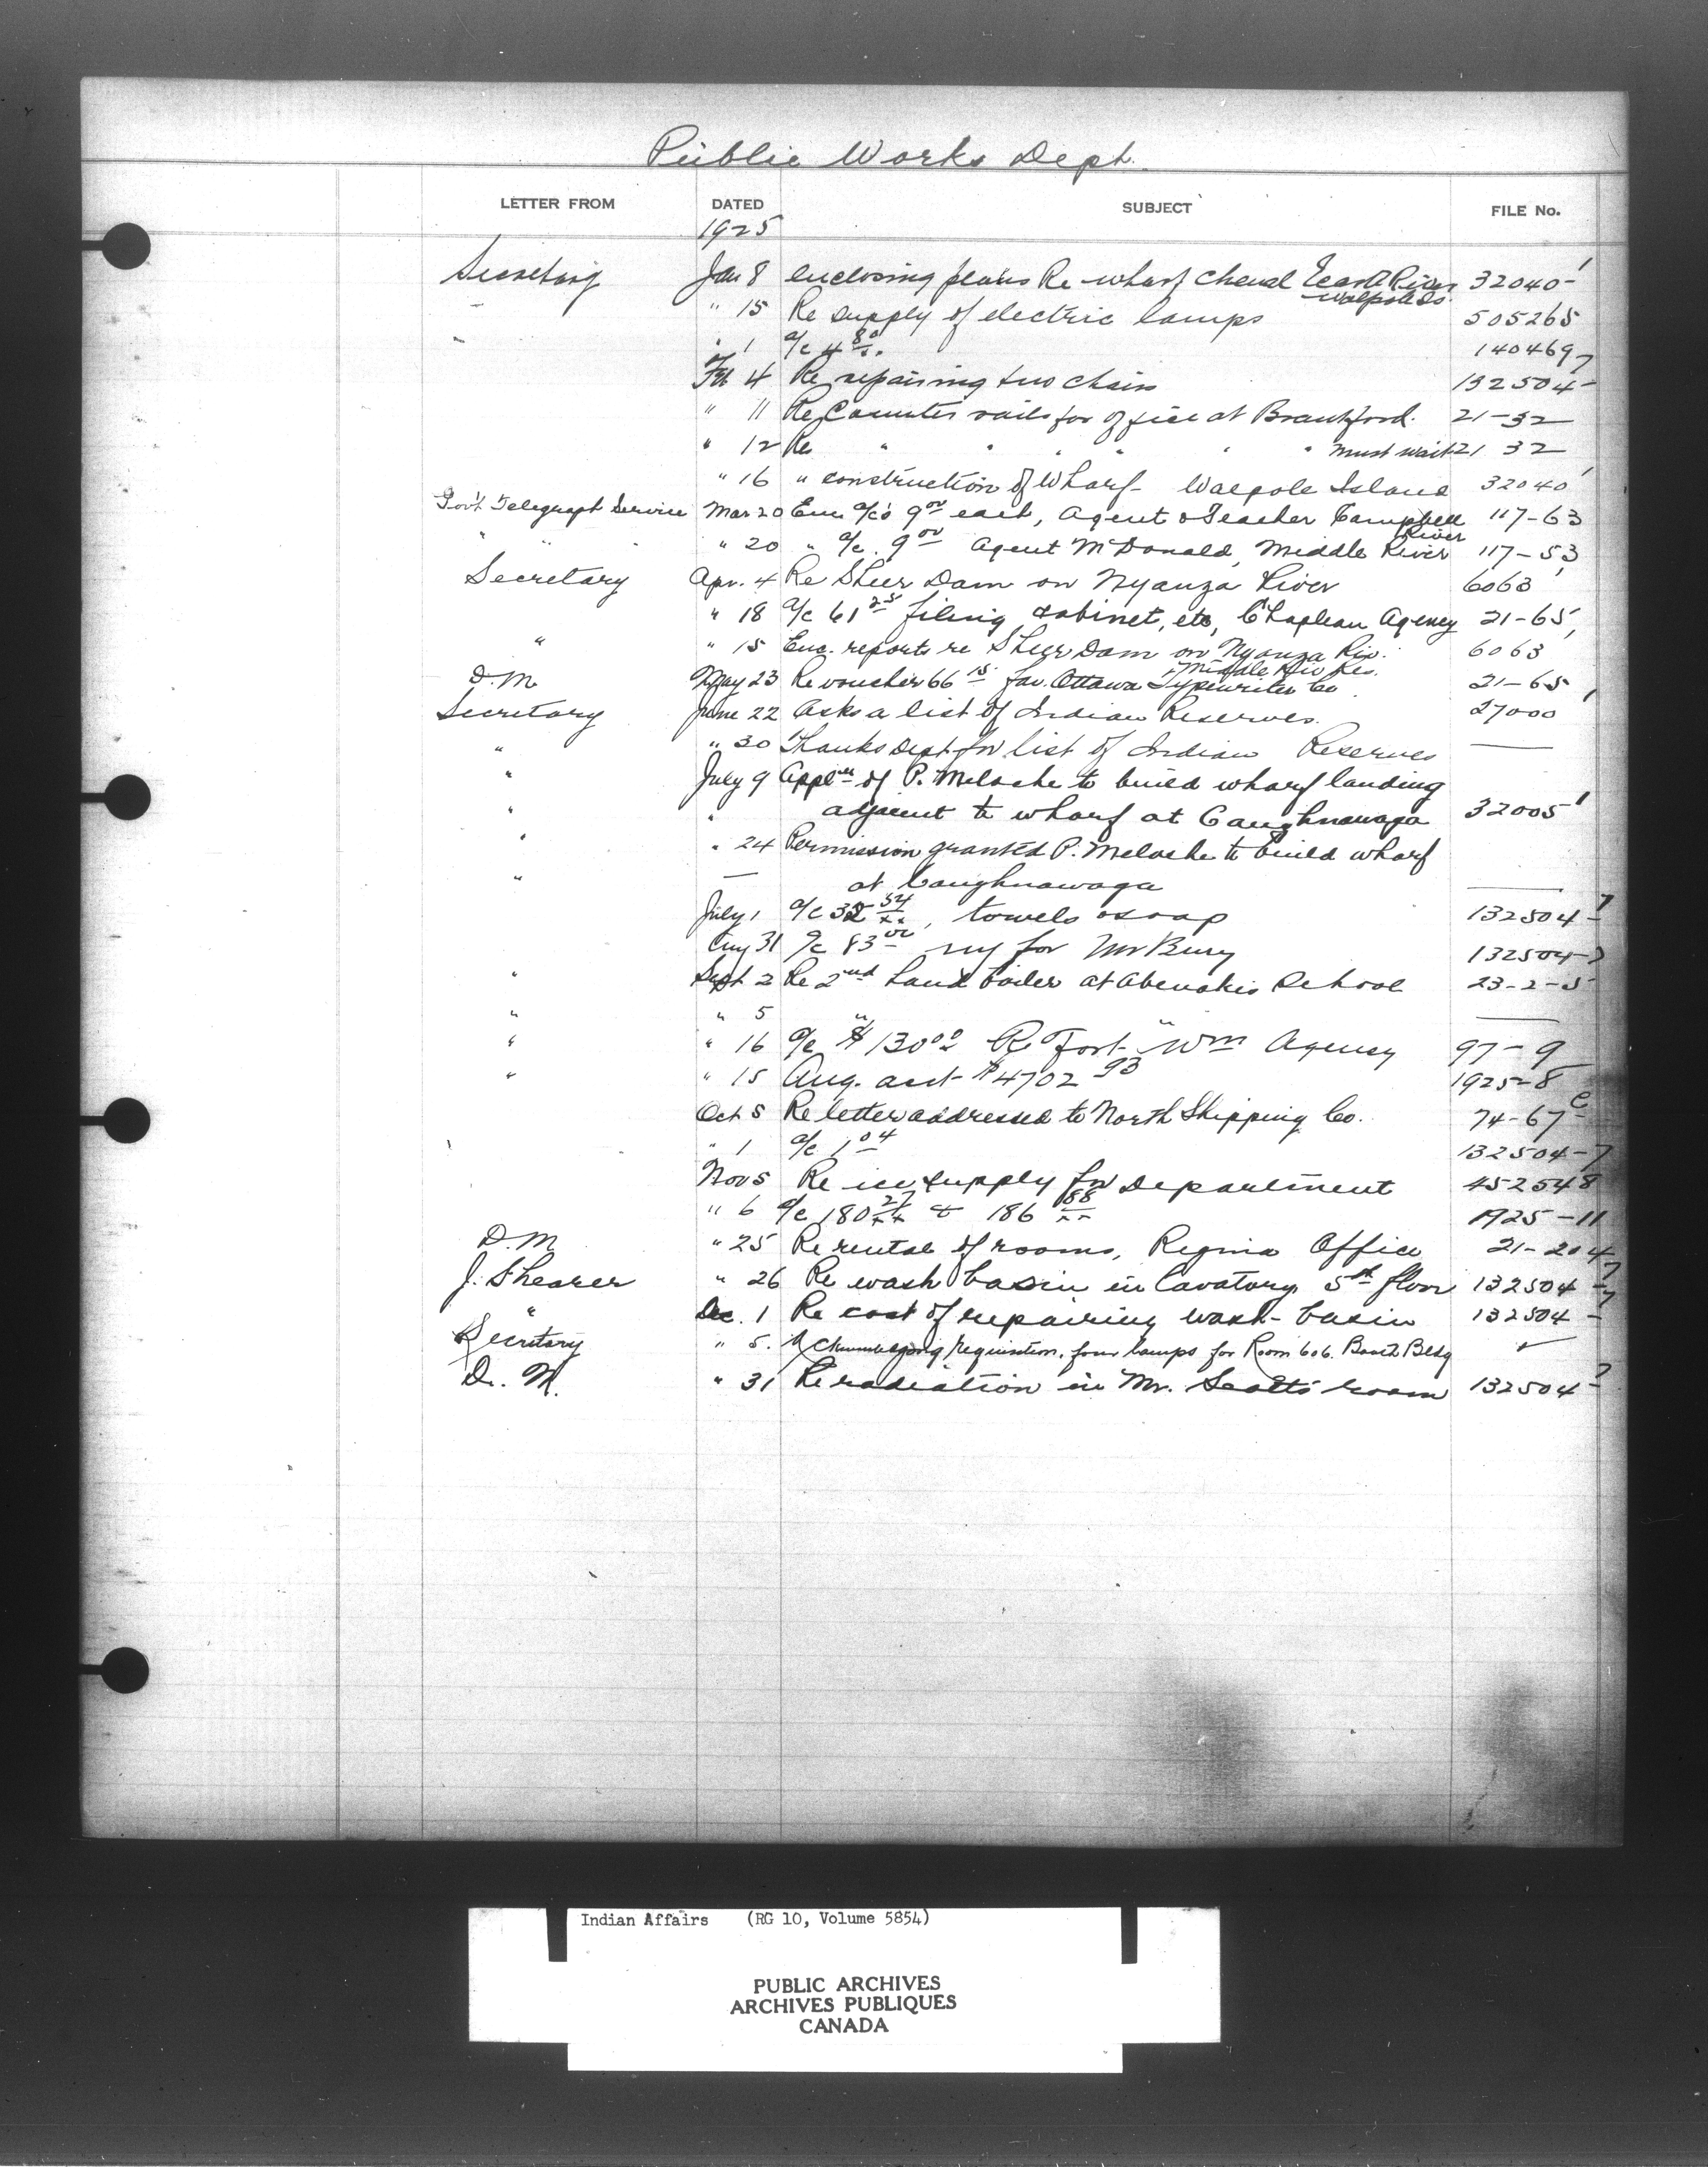 Public Works Dept.
LETTER FROM DATED SUBJECT FILE No.
1925
Secretary Jan 8 enclosing plans Re wharf Chenal Ecarte River 32040-1
Walpole Is.
" 15 Re supply of electric lamps 505265
" 1 a/c 4 80/xx 140469
Feb 4 Re repairing two chairs 132504-7
" 11 Re Counter rails for office at Brantford. 21-32
" 12 Re " " " " " " must wait 21 32
" 16 " construction of Wharf - Walpole Island 32040-1
Gov't Telegraph Service Mar 20 Enc. a/cs 9 00 each, Agent & Teacher Campbell 117-63
River
" " " 20 " a/c. 9 00 Agent McDonald, Middle River 117-53
Secretary Apr. 4 Re Sheer Dam on Nyanza River 6063-1
" 18 a/c 61 25 filing cabinet, etc, Chapleau Agency 21-65
" " 15 Enc. reports re Sheer Dam on Nyanza Riv. 6063-1
Middle Riv Res.
D. M. May 23 Re voucher 66 15 fav. Ottawa Typewriter Co. 21-65
Secretary June 22 Asks a list of Indian Reserves. 27000-1
" " 30 Thanks Dept. for list of Indian Reserves —
" July 9 Appl'n of P. Meloche to build wharf landing
" " adjacent to wharf at Caughnawaga 32005-1
" " 24 Permission granted P. Meloche to build wharf
" — at Caughnawaga —
July 1 a/c 32 54/xx, towels & soap 132504-7
Aug 31 a/c 83 00 rug for Mr Bury 132504-7
" Sept 2 Re 2nd hand boiler at Abenakis School 23-2-5
" " 5 " " —
" " 16 a/c $130 00 Re Fort Wm Agency 97-9
" " 15 Aug. acct $4702 93 1925-8
Oct 5 Re letter addressed to North Shipping Co. 74-67 C
" 1 a/c 1 04 132504-7
Nov 5 Re ice supply for Department 452548
" 6 a/c 180 27/xx & 186 88/xx 1925-11
D. M. " 25 Re rental of rooms, Regina Office 21-204
J. Shearer " 26 Re wash basin in lavatory 5th floor 132504-7
" Dec. 1 Re cost of repairing wash-basin 132504-7
Secretary " 5. Acknowledging requisition, four lamps for Room 606. Booth Bldg ✓
D. M. " 31 Re radiation in Mr. Scott's room 132504-7
Indian Affairs (RG 10, Volume 5854)
PUBLIC ARCHIVES
ARCHIVES PUBLIQUES
CANADA